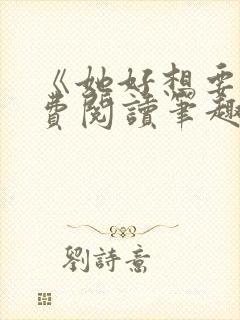 《她好想要
費閱讀筆趣
劉詩意